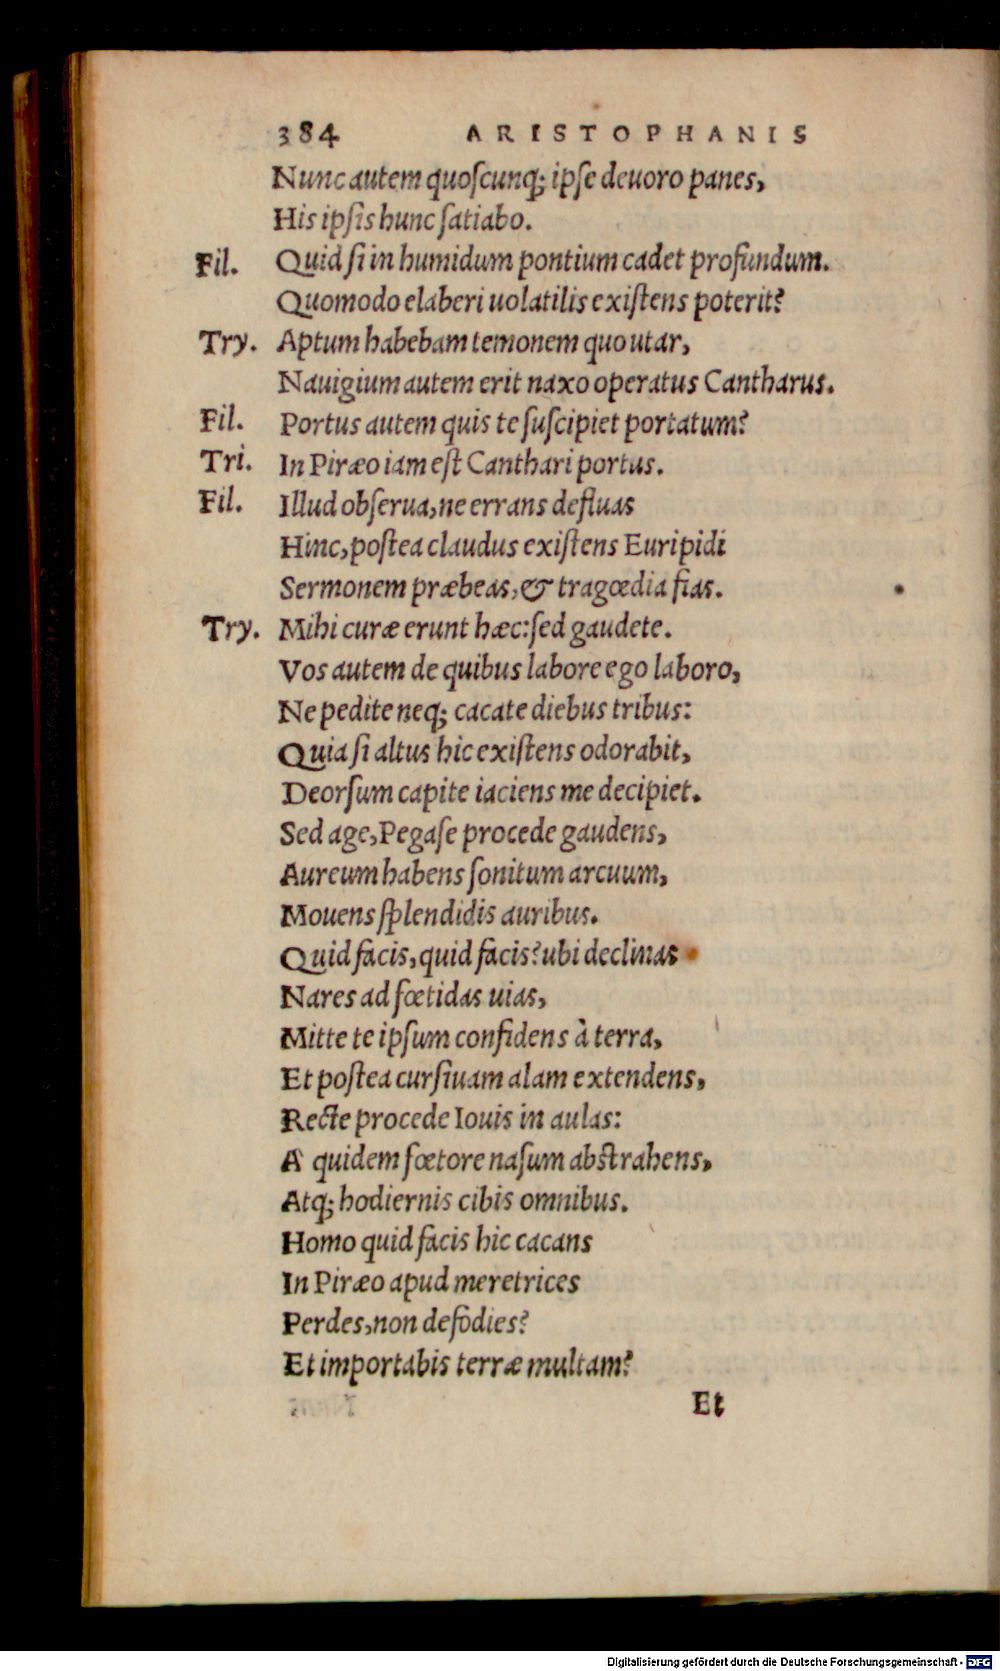 384 ARISTOPHANIS
Nunc autem quoſcunq; ipſe deuoro panes,
His ipſis hunc ſatiabo.
Fil. Quid ſi in humidum pontium cadet profundum.
Quomodo elaberi uolatilis exiſtens poterit?
Try. Aptum habebam temonem quo utar,
Nauigium autem erit naxo operatus Cantharus.
Fil. Portus autem quis te ſuſcipiet portatum?
Tri. In Piræo iam eſt Canthari portus.
Fil. Illud obſerua, ne errans defluas
Hinc, poſtea claudus exiſtens Euripidi
Sermonem præbeas, & tragœdia fias.
Try. Mihi curæ erunt hæc: ſed gaudete.
Vos autem de quibus labore ego laboro,
Ne pedite neq; cacate diebus tribus:
Quia ſi altus hic exiſtens odorabit,
Deorſum capite iaciens me decipiet.
Sed age, Pegaſe procede gaudens,
Aureum habens ſonitum arcuum,
Mouens ſplendidis auribus.
Quid facis, quid facis? ubi declinas
Nares ad fœtidas uias,
Mitte te ipſum confidens à terra,
Et poſtea curſiuam alam extendens,
Recte procede Iouis in aulas:
A quidem fœtore naſum abſtrahens,
Atq; hodiernis cibis omnibus.
Homo quid facis hic cacans
In Piræo apud meretrices
Perdes, non defodies?
Et importabis terræ multam?
Et
Digitalisierung gefördert durch die Deutsche Forschungsgemeinschaft - DFG